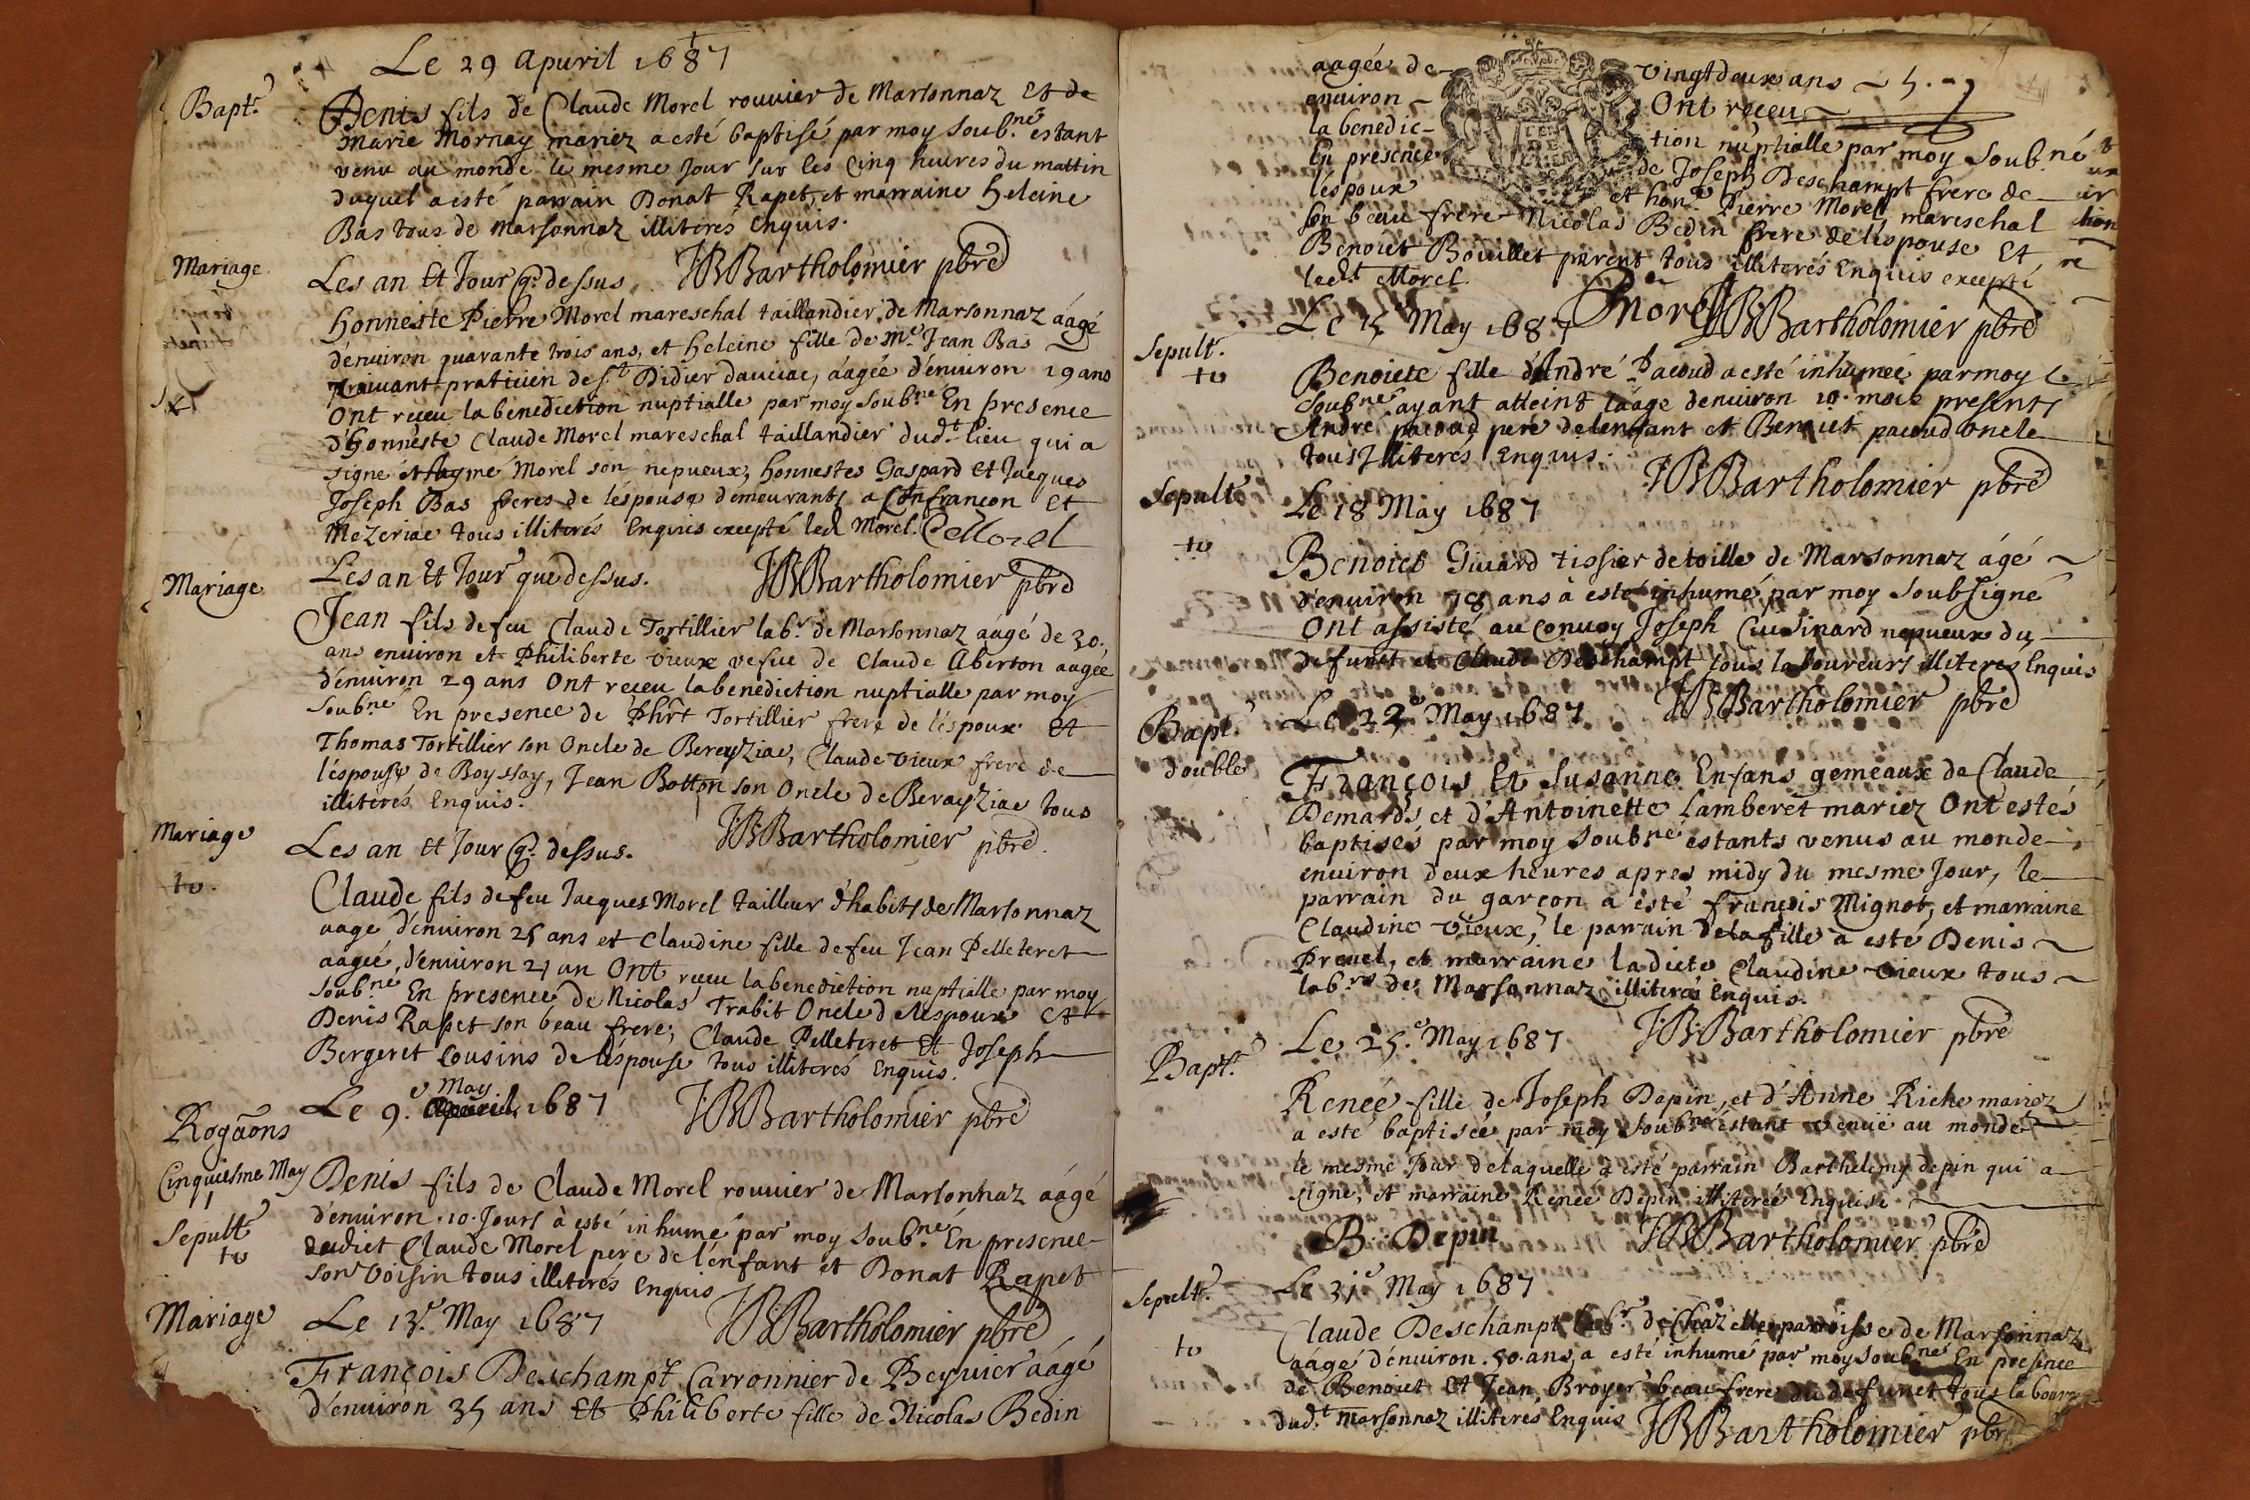 Le 29 Apuril 1687
Bapt.e
Denis fils de Claude Morel rouuier de Marsonnaz Et de
Marie Mornay mariez a esté baptisé par moy soub.né estant
venu au monde le mesme Jour sur les Cinq heures du mattin
duquel a esté parrain Donat Rapet, et marraine heleine
Bas tous de Marsonnaz illiterés Enquis.
JBBartholomier pbre
Mariage
Les an Et Jour q. dessus
honneste Pierre Morel mareschal taillandier de Marsonnaz aagé
d'enuiron quarante trois ans, et heleine fille de m.e Jean Bas
viuant praticien de s.t Didier dauciac, áagée d'énuiron 19 ans
Ont reçeu la benediction nuptialle par moy soub.né En presence
d'honneste Claude Morel mareschal taillandier dud.t lieu qui a
signé et Aymé Morel son nepueux, honnestes Gaspard Et Jacques
Joseph Bas freres de léspouse demeurants a Confrançon Et
Mezeriac tous illiterés Enquis excepté led Morel. CMorel
JBBartholomier pbre
Mariage
Les an Et Jour que dessus.
Jean fils de feu Claude Tortillier lab.r de Marsonnaz aagé de 30.
ans enuiron et Philiberte vieux vefue de Claude Aberton aagée
d'énuiron 29 ans Ont reçeu la benediction nuptialle par moy
soub.né En presence de Phi͠rt Tortillier frere de léspoux Et
Thomas Tortillier son Oncle de Bereyziac, Claude vieux frere de
l'éspouse de Boyssay, Jean Botton son Oncle de Berayziac tous
illiterés Enquis.
JBBartholomier pbre
Mariage
to.
Les an Et Jour q. dessus.
Claude fils de feu Jacques Morel tailleur d'habits de Marsonnaz
aagé d'énuiron 25 ans et Claudine fille de feu Jean Pelleteret
aagée d'énuiron 21 an Ont reçeu la benediction nuptialle par moy
soub.né En presence de Nicolas Trabit Oncle de léspoux Et
Denis Rapet son beau frere, Claude Pelleteret Et Joseph
Bergeret Cousins de léspouse tous illiterés Enquis.
JBBartholomier pbre
Le 9.e May Apuril 1687
Rogaõns
Cinquiesme May
Sepult.e
to
Denis fils de Claude Morel rouuier de Marsonnaz aágé
d'énuiron .10. Jours à esté inhumé par moy soub.né En presence
dudict Claude Morel pere de l'énfant et Donat Rapet
son voisin tous illiterés Enquis
JBBartholomier pbre
Mariage
Le 13.e May 1687
François Deschampt Carronnier de Beyuier áagé
d'énuiron 35 ans Et Philiberte fille de Nicolas Bedin
aagée de vingt deux ans
enuiron Ont reçeu
la benedic-tion nuptialle par moy soub.né
En presence de Joseph Deschampt frere de
léspoux et hon.e Pierre Morel mareschal
son beau frere Nicolas Bedin frere de léspouse Et
Benoict Bouillet parent tous illiterés Enquis excepté
led.t Morel.
Morel JBBartholomier pbre
Sepult.e
to
Le 15 May 1687
Benoicte fille d'André Pacoud a esté inhumée par moy
soub.né ayant atteint l'aage denuiron 10. mois presents
André pacoud pere de lenfant et Benoict pacoud oncle
tous Illiterés Enquis.
JBBartholomier pbre
Sepult.e
to
Le 18 May 1687
Benoict Giuard tissier de toille de Marsonnaz ágé
d'énuiron 78 ans à esté inhumé par moy soubsigné
Ont assisté au conuoy Joseph Cuisinard nepueux du
defunct et Claude Deschampt tous laboureurs illiteres Enquis
JBBartholomier pbre
Bapt.e
double
Le 22.e May 1687
François Et Susanne Enfans gemeaux de Claude
Demards et d'Antoinette Lamberet mariez Ont estés
baptisés par moy soub.né estants venus au monde
enuiron deux heures apres midy du mesme Jour, le
parrain du garçon à esté françois Mignot, et marraine
Claudine vieux, le parrain de la fille à esté Denis
Preuel, et marraine ladicte Claudine vieux tous
lab.rs de Marsonnaz illiterés Enquis.
JBBartholomier pbre
Bapt.e
Le 25.e May 1687
Renée fille de Joseph Depin, et d'Anne Riche mariez
a esté baptisée par moy soub.né estant venüe au monde
le mesme Jour de laquelle à esté parrain Barthelemy depin qui a
signé, et marraine Renée Depin illiterée Enquise
B. Depin JBBartholomier pbre
Sepult.e
to
Le 31.e May 1687
Claude Deschampt lab.r de Chazelles parroisse de Marsonnaz
aágé d'énuiron .50. ans, a esté inhumé par moy soub.né En presence
de Benoict Et Jean Broyer beau frere du defunct tous labour
dud.t Marsonnaz illiterés Enquis
JBBartholomier pbr